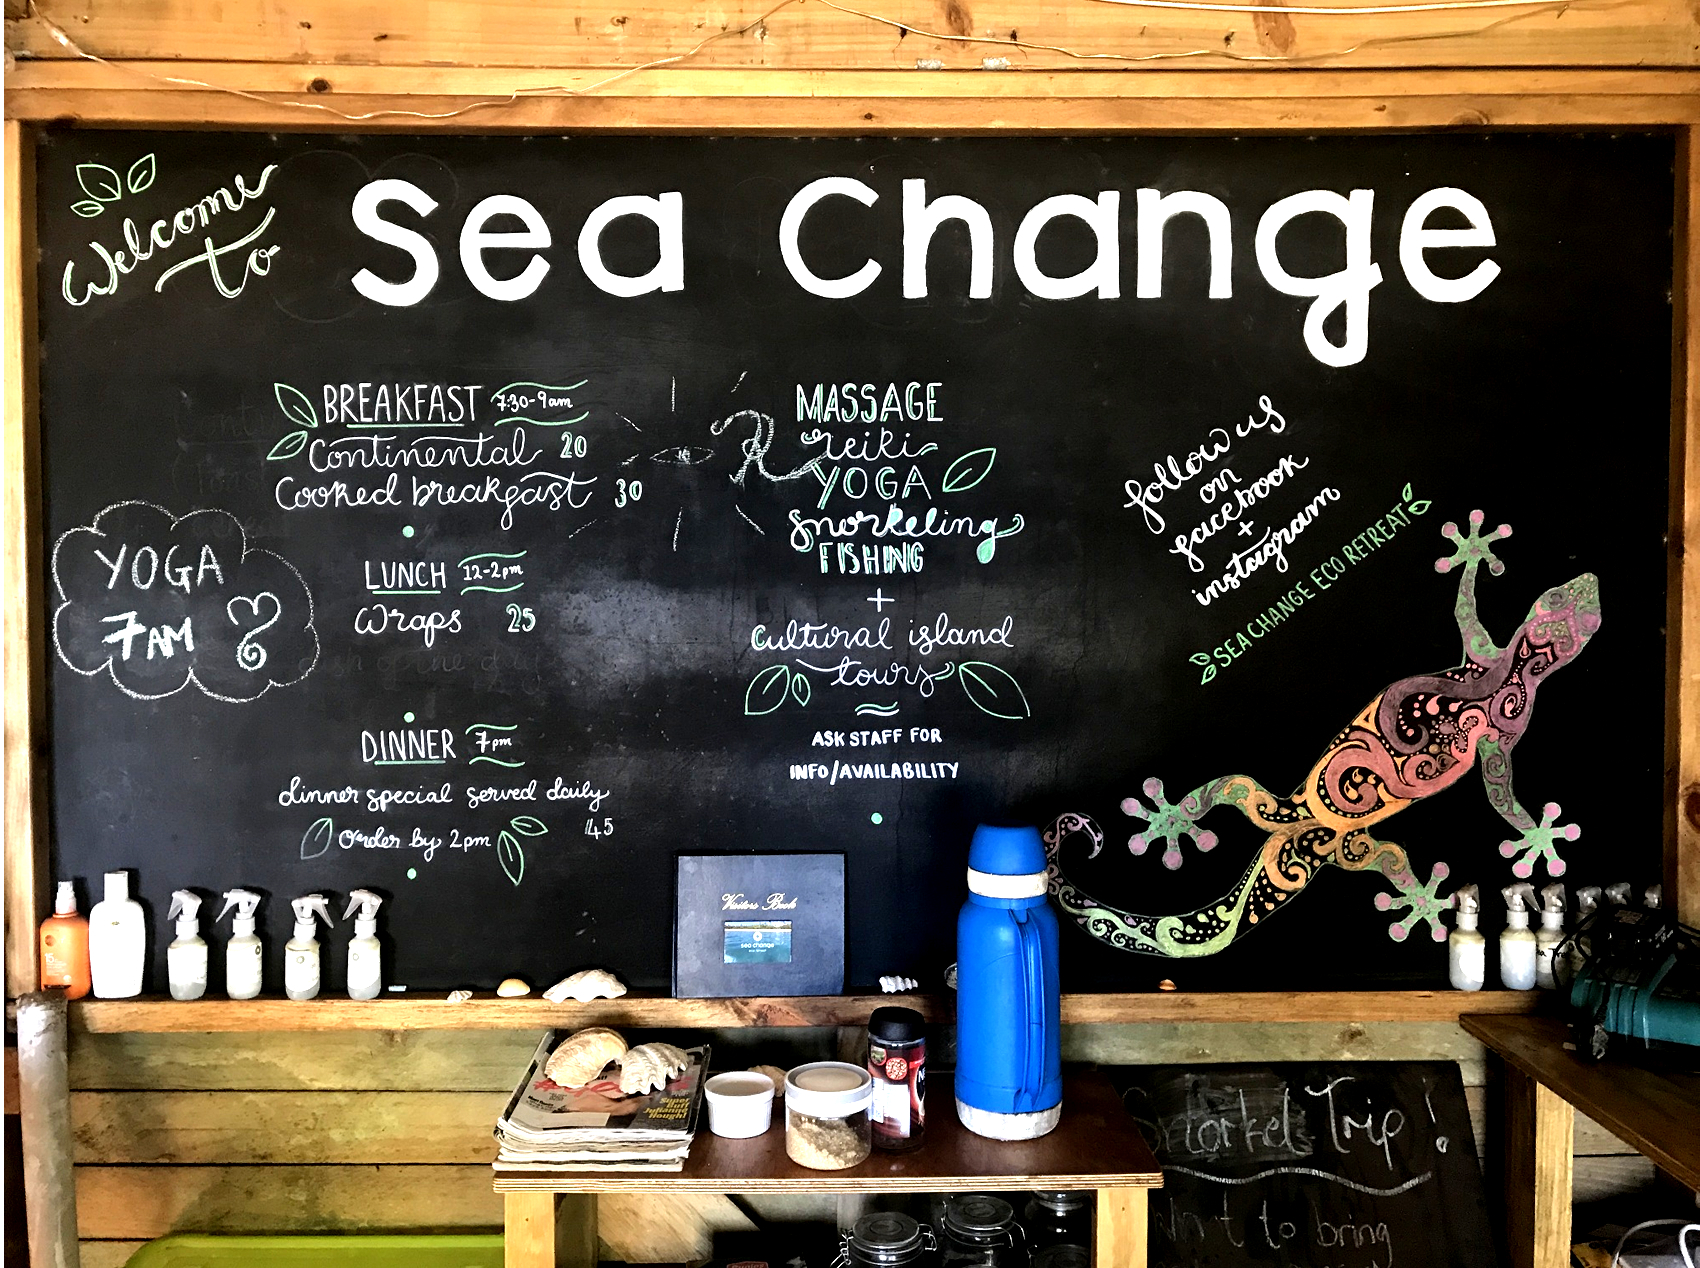 Welcome
to
Sea Change
BREAKFAST 7:30-9am
Continental 20
Cooked breakfast 30
LUNCH 12-2pm
Wraps 25
DINNER 7pm
dinner special served daily
45
Order by 2pm
YOGA
7AM
MASSAGE
reiki
YOGA
snorkeling
FISHING
+
cultural island
tours
ASK STAFF FOR
INFO/AVAILABILITY
follow us
on
facebook
+
instagram
SEA CHANGE ECO RETREAT
Visitors Book
sea change
15
Super
Buff
Julianne
Hough!
Snorkel Trip!
What to bring